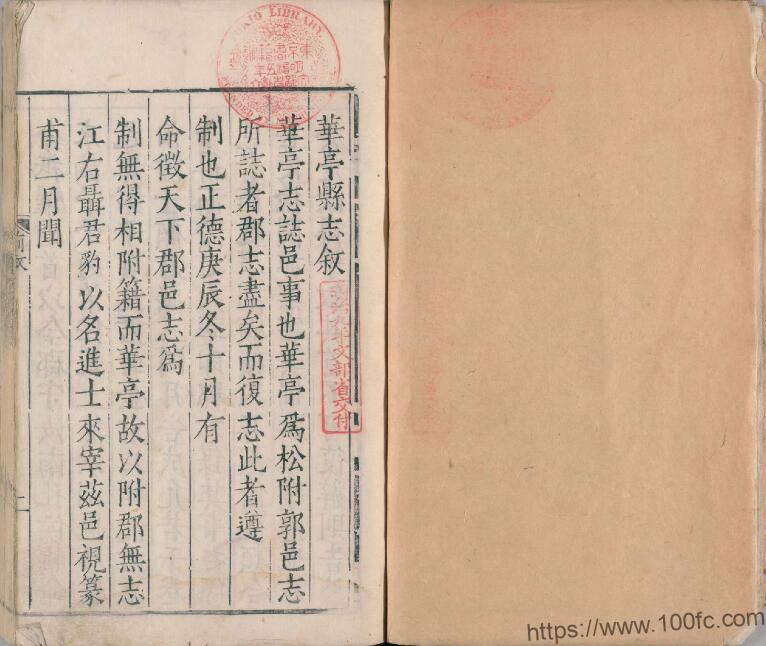 華亭縣志敘
華亭志誌邑事也華亭爲松附郭邑志
所誌者郡志盡矣而復志此者遵
制也正德庚辰冬十月有
命徵天下郡邑志爲
制無得相附籍而華亭故以附郡無志
江右聶君豹以名進士來宰茲邑視篆
甫二月聞
明治九年文部省交付
LIBRARY
https://www.100fc.com